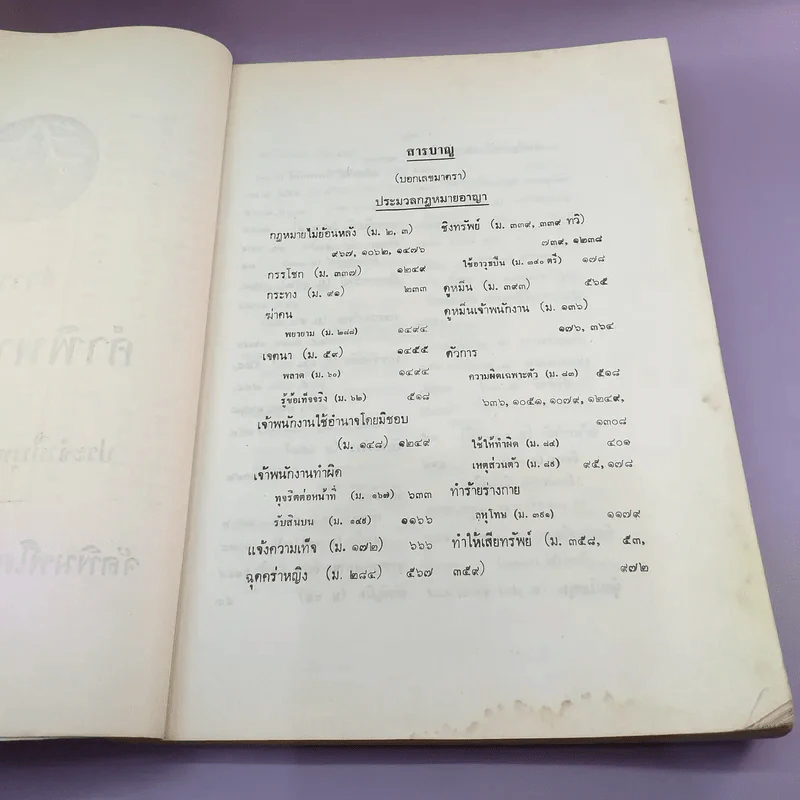 สารบาญ
(บอกเลขมาตรา)
ประมวลกฎหมายอาญา
กฎหมายไม่ย้อนหลัง (ม. ๒, ๓)
๙๖๗, ๑๐๖๒, ๑๔๗๖
กรรโชก (ม. ๓๓๗) ๑๒๔๙
กระทง (ม. ๙๑) ๒๓๓
ฆ่าคน
พยายาม (ม. ๒๘๘) ๑๔๙๔
เจตนา (ม. ๕๙) ๑๔๕๕
พลาด (ม. ๖๐) ๑๔๙๔
รู้ข้อเท็จจริง (ม. ๖๒) ๕๑๘
เจ้าพนักงานใช้อำนาจโดยมิชอบ
(ม. ๑๔๘) ๑๒๔๙
เจ้าพนักงานทำผิด
ทุจริตต่อหน้าที่ (ม. ๑๖๗) ๖๓๓
รับสินบน (ม. ๑๔๙) ๑๑๖๖
แจ้งความเท็จ (ม. ๑๗๒) ๖๖๖
ฉุดคร่าหญิง (ม. ๒๘๔) ๕๖๗
ชิงทรัพย์ (ม. ๓๓๙, ๓๓๙ ทวิ)
๗๓๙, ๑๒๓๘
ใช้อาวุธปืน (ม. ๓๔๐ ตรี) ๑๗๘
ดูหมิ่น (ม. ๓๙๓) ๕๖๕
ดูหมิ่นเจ้าพนักงาน (ม. ๑๓๖)
๑๗๖, ๓๖๔
ตัวการ
ความผิดเฉพาะตัว (ม. ๘๓) ๕๑๘
๖๓๖, ๑๐๕๑, ๑๐๗๙, ๑๒๔๙,
๑๓๐๘
ใช้ให้ทำผิด (ม. ๘๔) ๔๐๑
เหตุส่วนตัว (ม. ๘๙) ๙๕, ๑๗๘
ทำร้ายร่างกาย
ลหุโทษ (ม. ๓๙๑) ๑๑๗๙
ทำให้เสียทรัพย์ (ม. ๓๕๘, ๕๓,
๓๕๙) ๙๗๒